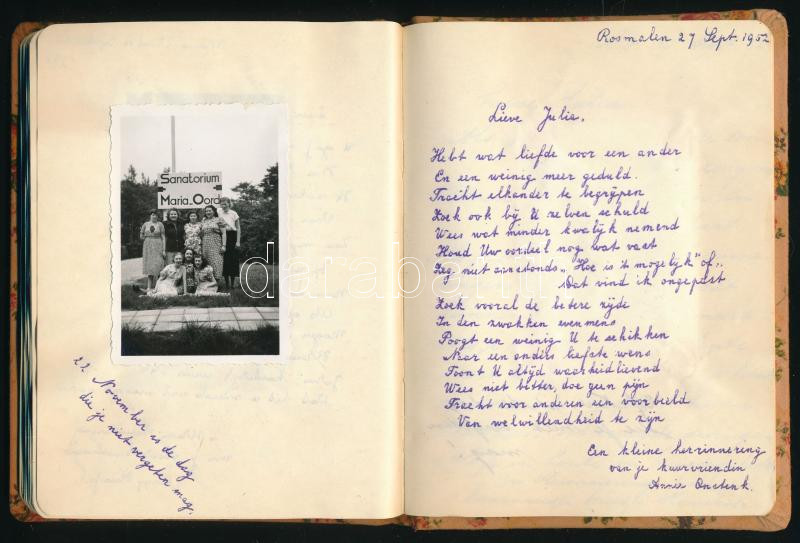 Sanatorium
Maria-Oord
22 November is de dag
die je niet vergeten mag.
Rosmalen 27 Sept. 1952
Lieve Julia.
Hebt wat liefde voor een ander
En een weinig meer geduld.
Tracht elkander te begrijpen
Zoek ook bij U zelven schuld
Wees wat minder kwalijk nemend
Houd Uw oordeel nog wat vast
Zeg niet aanstonds „Hoe is 't mogelijk" of „
Dat vind ik ongepast
Zoek vooral de betere zijde
In den zwakken evenmens
Poogt een weinig U te schikken
Naar een anders liefste wens
Toont U altijd waarheidlievend
Wees niet bitter, doe geen pijn
Tracht voor anderen een voorbeeld
Van welwillendheid te zijn
Een kleine herrinnering
van je kuurvriendin
Annie
darabanth